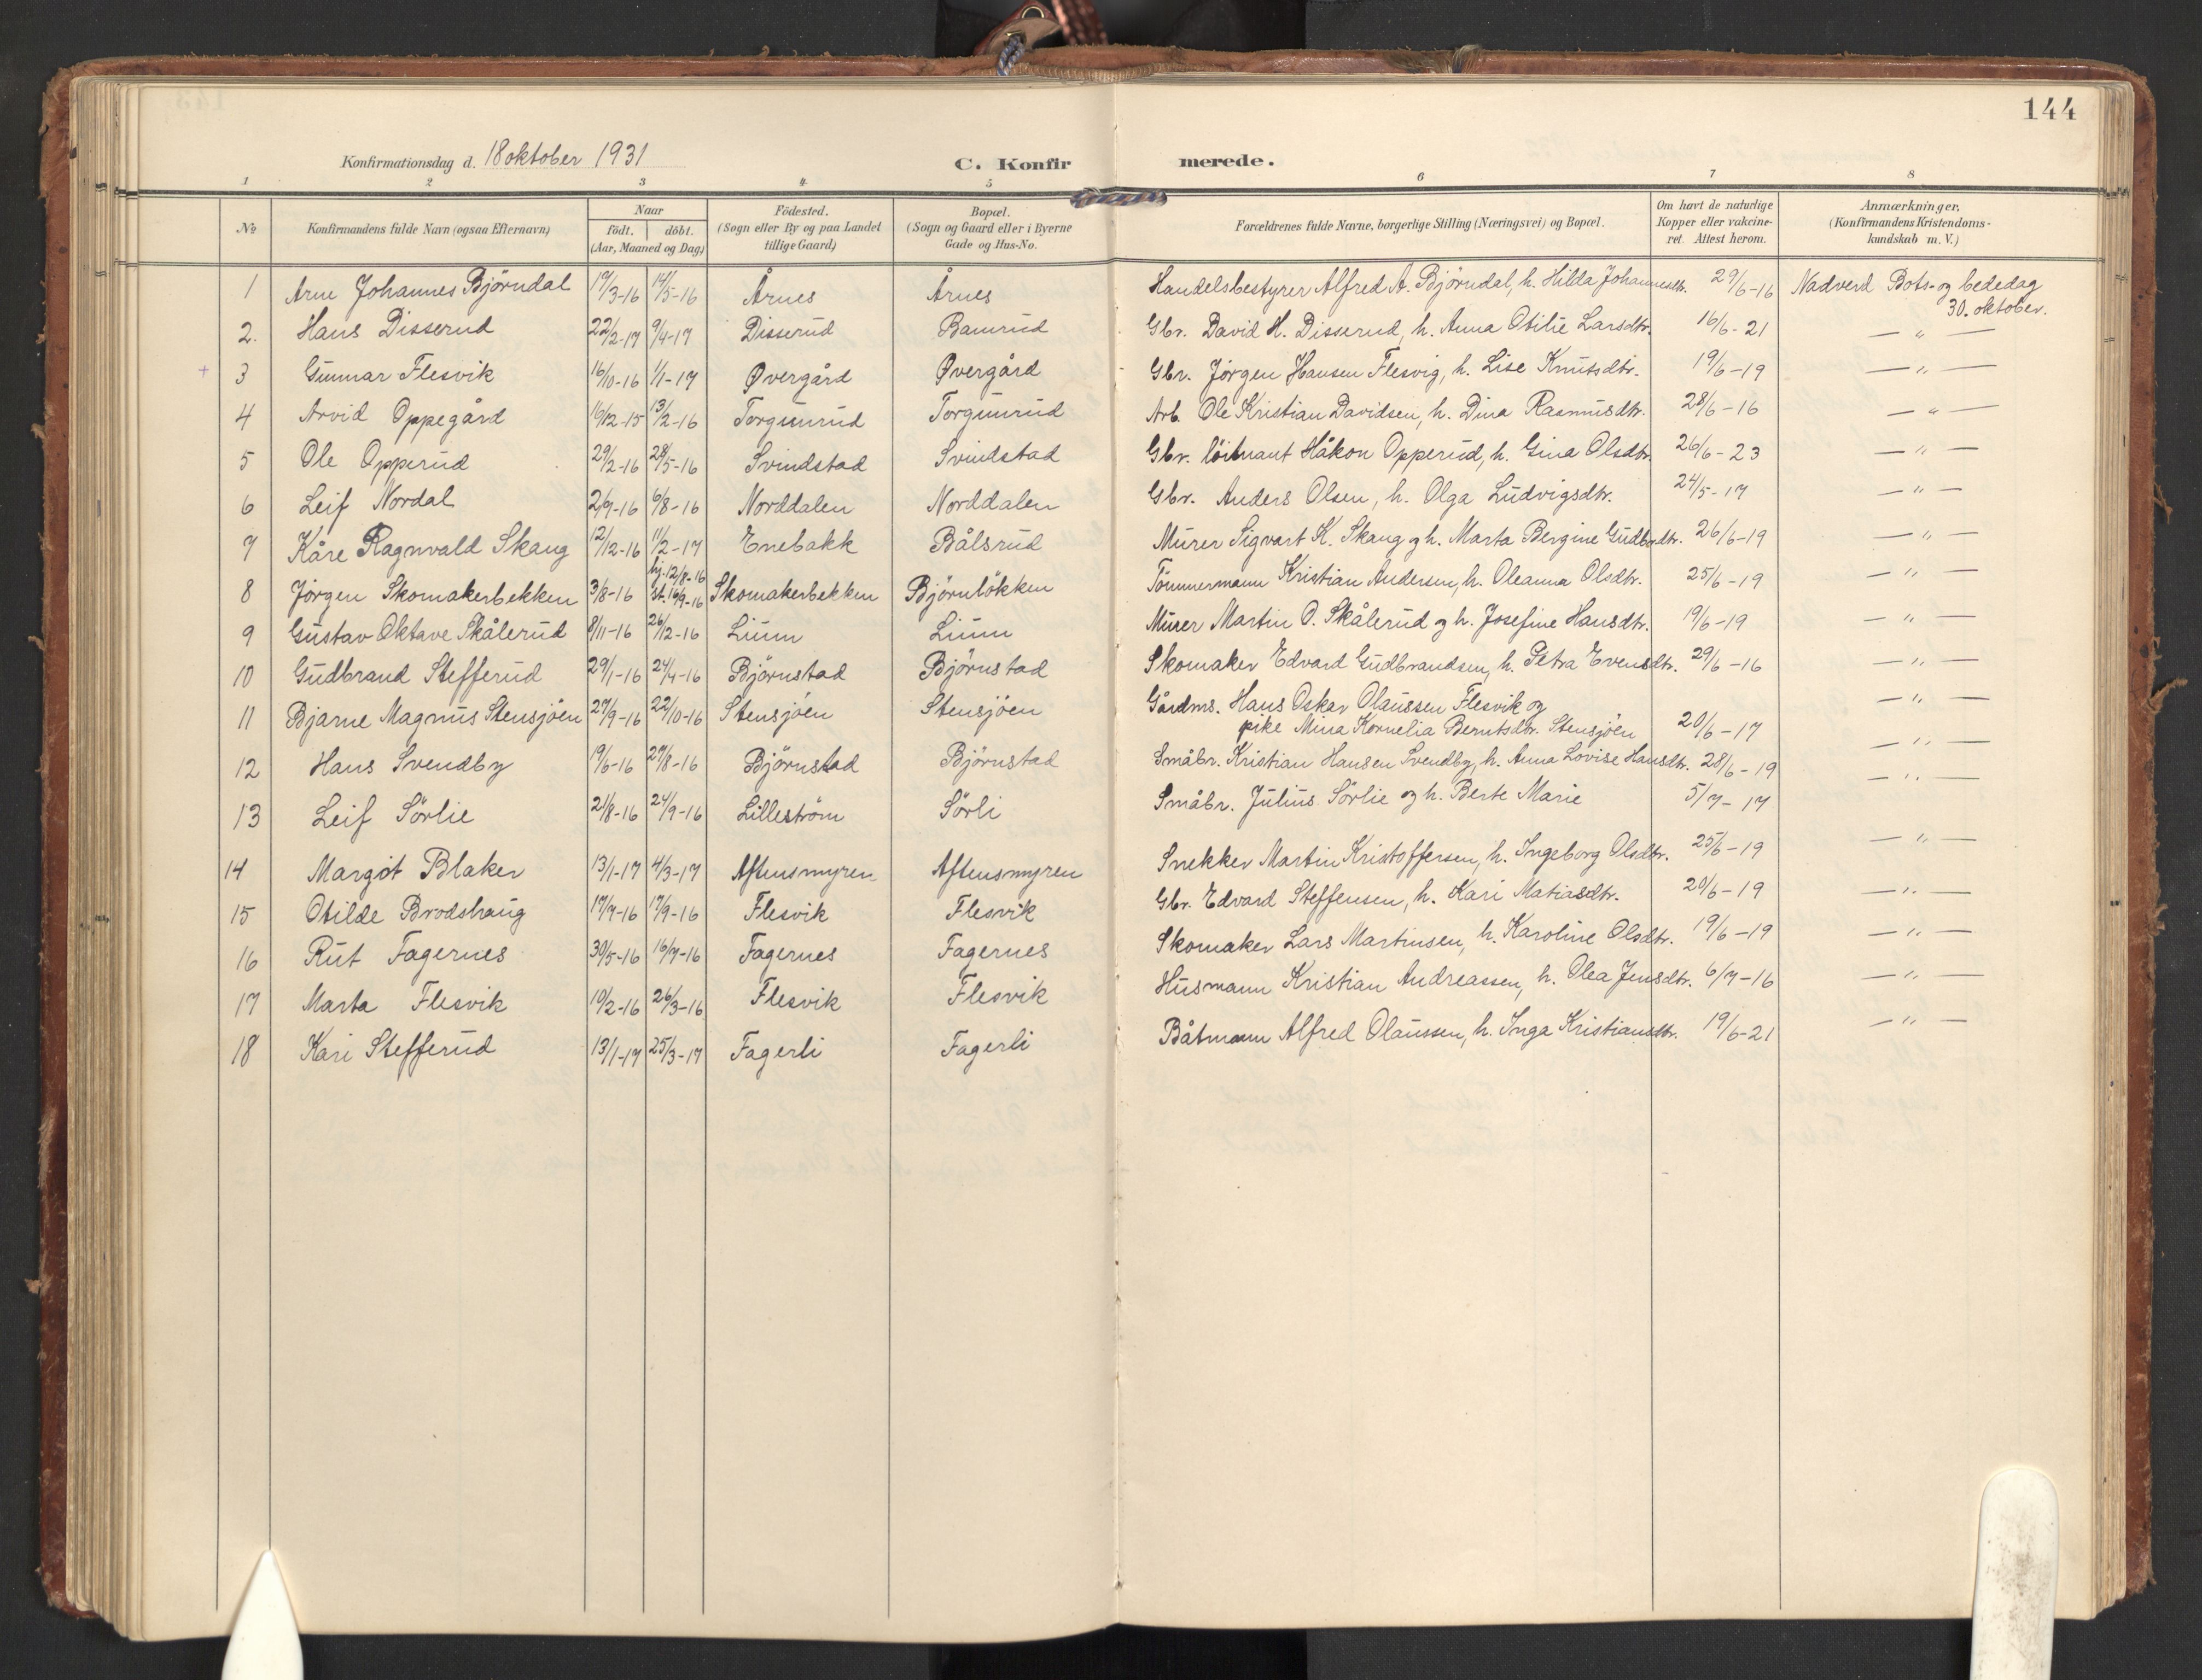 144
Konfirmationsdag d. 18 oktober 1931
C. Konfirmerede.
1 2 3 4 5 6 7 8
No
Konfirmandens fulde Navn (ogsaa Efternavn)
Naar
födt. döbt.
(Aar, Maaned og Dag)
Födested.
(Sogn eller By og paa Landet
tillige Gaard)
Bopæl.
(Sogn og Gaard eller i Byerne
Gade og Hus-No.
Forældrenes fulde Navne, borgerlige Stilling (Næringsvei) og Bopæl.
Om havt de naturlige
Kopper eller vakcine-
ret. Attest herom.
Anmærkninger,
(Konfirmandens Kristendoms-
kundskab m. V.)
1 Arne Johannes Björndal 19/3-16 14/5-16 Årnes Årnes Handelsbestyrer Alfred A. Björndal, h. Hilda Johannesdtr. 29/6-16 Nadverd Bots- og bededag
30. oktober.
2. Hans Disserud 22/2-17 9/4-17 Disserud Bamrud Gbr. David H. Disserud, h. Anna Otilie Larsdtr. 16/6-21 — " —
+ 3 Gunnar Flesvik 16/10-16 1/1-17 Øvergård Øvergård Gbr. Jörgen Hansen Flesvig, h. Lise Knutsdtr. 19/6-19 — " —
4 Arvid Oppegård 16/12-15 13/2-16 Torgunrud Torgunrud Arb. Ole Kristian Davidsen, h. Dina Rasmusdtr. 28/6-16 — " —
5 Ole Opperud 29/2-16 28/5-16 Svindstad Svindstad Gbr. löitnant Håkon Opperud, h. Gina Olsdtr. 26/6-23 — " —
6 Leif Nordal 6/8-16 Norddalen Norddalen Gbr. Anders Olsen, h. Olga Ludvigsdtr. 24/5-17 — " —
7 Kåre Ragnvald Skaug 12/12-16 11/2-17 Enebakk Bålsrud Murer Sigvart K. Skaug og h. Marta Bergine Gudbrdtr. 26/6-19 — " —
hj. 12/8-16
8 Jörgen Skomakerbekken 3/8-16 st. 16/9-16 Skomakerbekken Björnlökken Tömmermann Kristian Andersen, h. Oleanna Olsdtr. 25/6-19 — " —
9 Gustav Oktave Skålerud 8/11-16 26/12-16 Lium Lium Murer Martin O. Skålerud og h. Josefine Hansdtr. 19/6-19 — " —
10 Gudbrand Stefferud 29/1-16 24/4-16 Björnstad Björnstad Skomaker Edvard Gudbrandsen, h. Petra Evensdtr. 29/6-16 — " —
11 Bjarne Magnus Stensjöen 27/9-16 22/10-16 Stensjöen Stensjöen Gårdms. Hans Oskar Olaussen Flesvik og — " —
pike Mina Kornelia Berntsdtr. Stensjöen 20/6-17
12 Hans Svendby 19/6-16 27/8-16 Björnstad Björnstad Småbr. Kristian Hansen Svendby, h. Anna Lovise Hansdtr. 28/6-19 — " —
13 Leif Sörlie 21/8-16 24/9-16 Lilleström Sörli Småbr. Julius Sörlie og h. Berte Marie 5/7-17 — " —
14 Margot Blaker 13/1-17 4/3-17 Aftensmyren Aftensmyren Snekker Martin Kristoffersen, h. Ingeborg Olsdtr. 25/6-19 — " —
15 Otilde Brodshaug 17/7-16 17/9-16 Flesvik Flesvik Gbr. Edvard Steffensen, h. Kari Matiasdtr. 20/6-19 — " —
16 Rut Fagernes 30/5-16 16/7-16 Fagernes Fagernes Skomaker Lars Martinsen, h. Karoline Olsdtr. 19/6-19 — " —
17 Marta Flesvik 10/2-16 26/3-16 Flesvik Flesvik Husmann Kristian Andreassen, h. Olea Jensdtr. 6/7-16 — " —
18 Kari Stefferud 13/1-17 25/3-17 Fagerli Fagerli Båtmann Alfred Olaussen, h. Inga Kristiansdtr. 19/6-21 — " —